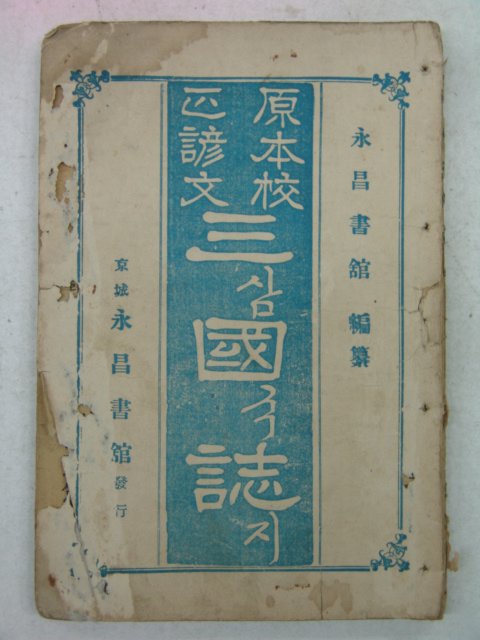 永昌書舘 編纂
原本校
正諺文
三삼國국誌지
京城 永昌書舘 發行